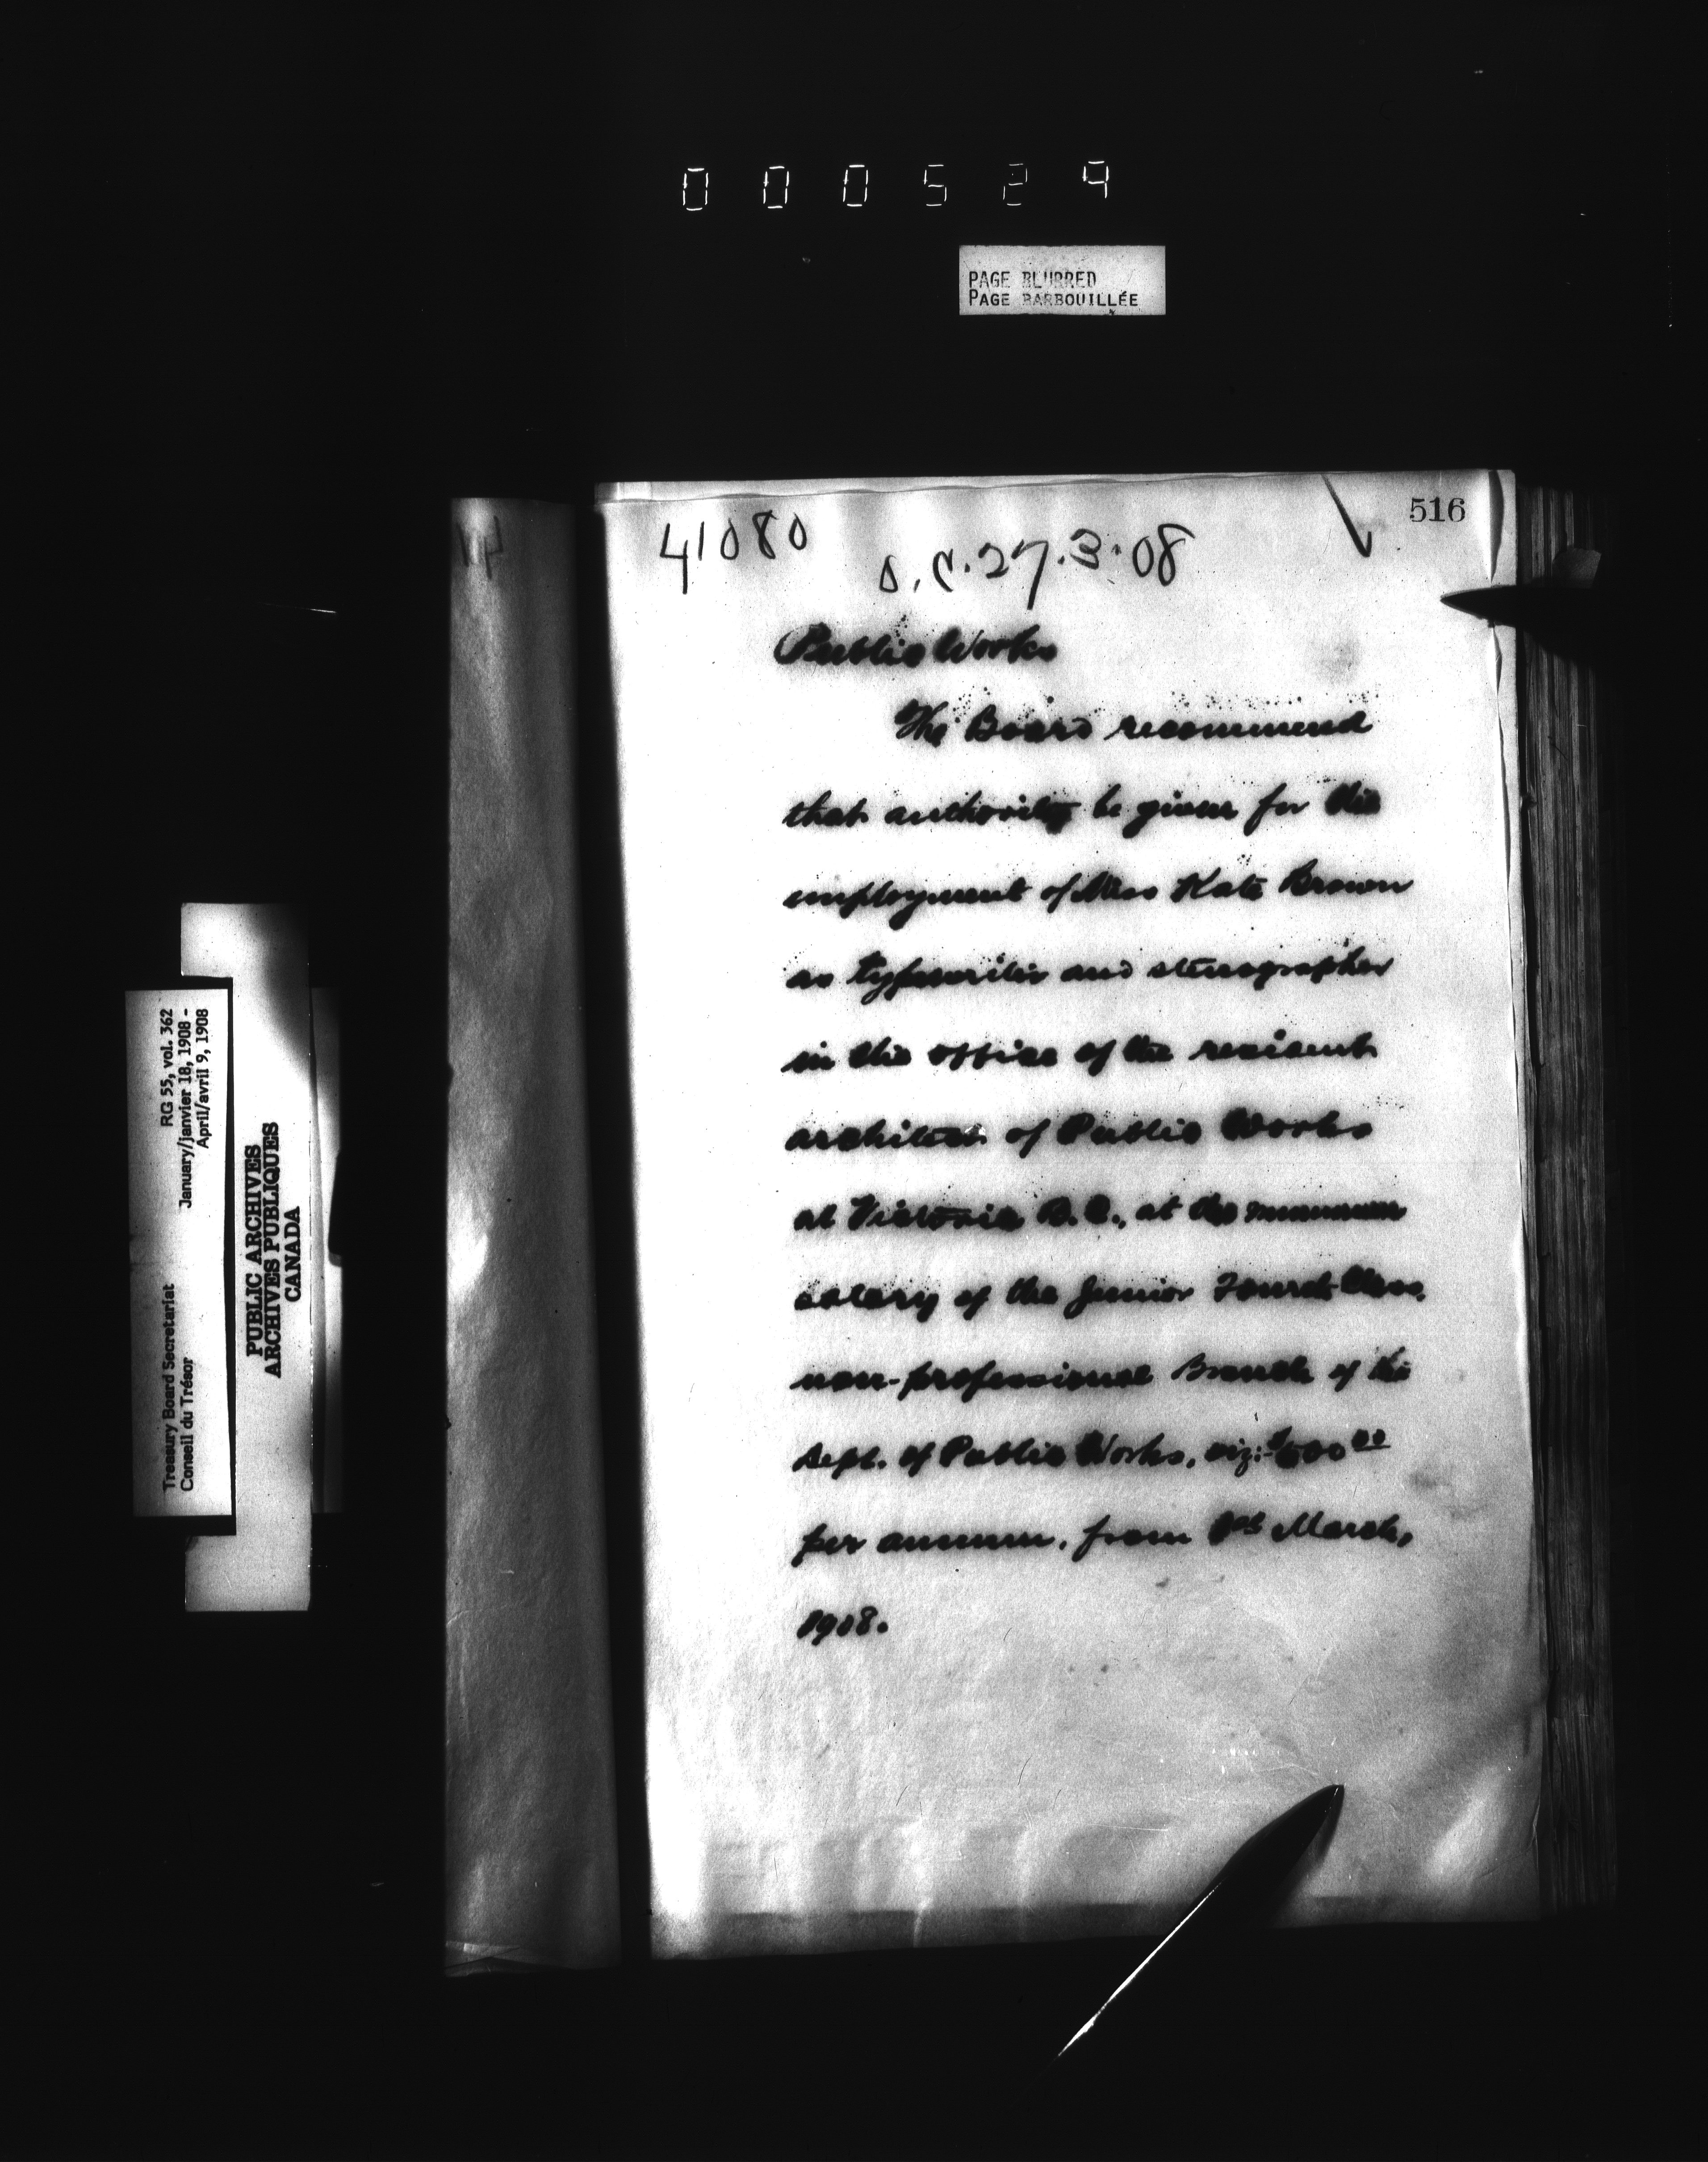 000529
PAGE BLURRED
PAGE BARBOUILLÉE
516
41080
O.C. 27.3.08
Public Works
The Board recommend
that authority be given for the
employment of Miss Kate Brown
as typewriter and stenographer
in the office of the resident
architect of Public Works
at Victoria B.C., at the minimum
salary of the Junior Fourth Class,
non-professional Branch of the
Dept. of Public Works, viz:- $600 00
per annum, from 1st March,
1908.
RG 55, vol. 362
January/janvier 18, 1908 -
April/avril 9, 1908
Treasury Board Secretariat
Conseil du Trésor
PUBLIC ARCHIVES
ARCHIVES PUBLIQUES
CANADA